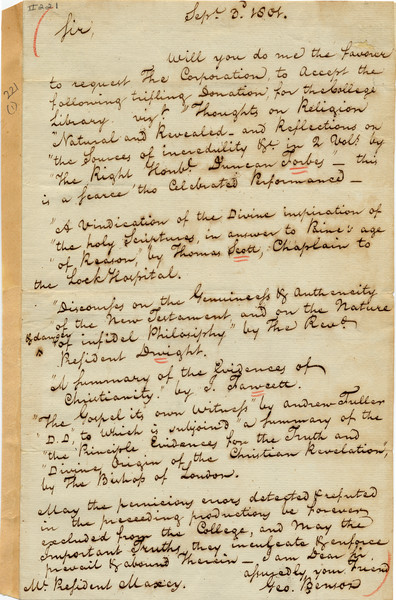 II 221
221
(1)
Sepr. 3d. 1801.
Sir,
Will you do me the favour
to request The Corporation, to Accept the
following trifling Donation, for the College
Library. vizt. "Thoughts on Religion
"Natural and Revealed - and Reflections on
"the Sources of incredulity &c in 2 Vols by
"The Right Honbe. Duncan Forbes - this
is a scarce tho Celebrated Performance -
"A Vindication of the Divine inspiration of
"the holy Scriptures, in answer to Pine's age
"of Reason," by Thomas Scott, Chaplain to
the Lock Hospital.
"Discourses on the Genuineness & Authenticity
"of the New Testament, and on the Nature
& danger
"of infidel Philosophy" by The Revd.
President Dwight.
"A Summary of the Evidences of
Christianity" by J. Fawcett.
"The Gospel its own Witness" by Andrew Fuller
"D.D." to which is subjoined "a Summary of the
"the Principle Evidences for the Truth and
"Divine Origin of the Christian Revelation",
by The Bishop of London.
May the pernicious errors detected & refuted
in the preceeding productions be forever
excluded from the College, and May the
Important Truths, they inculcate & enforce
prevail & abound Therein - I am Dear Sir.
assuredly your Friend
Mr. President Maxcy. Geo. Benson